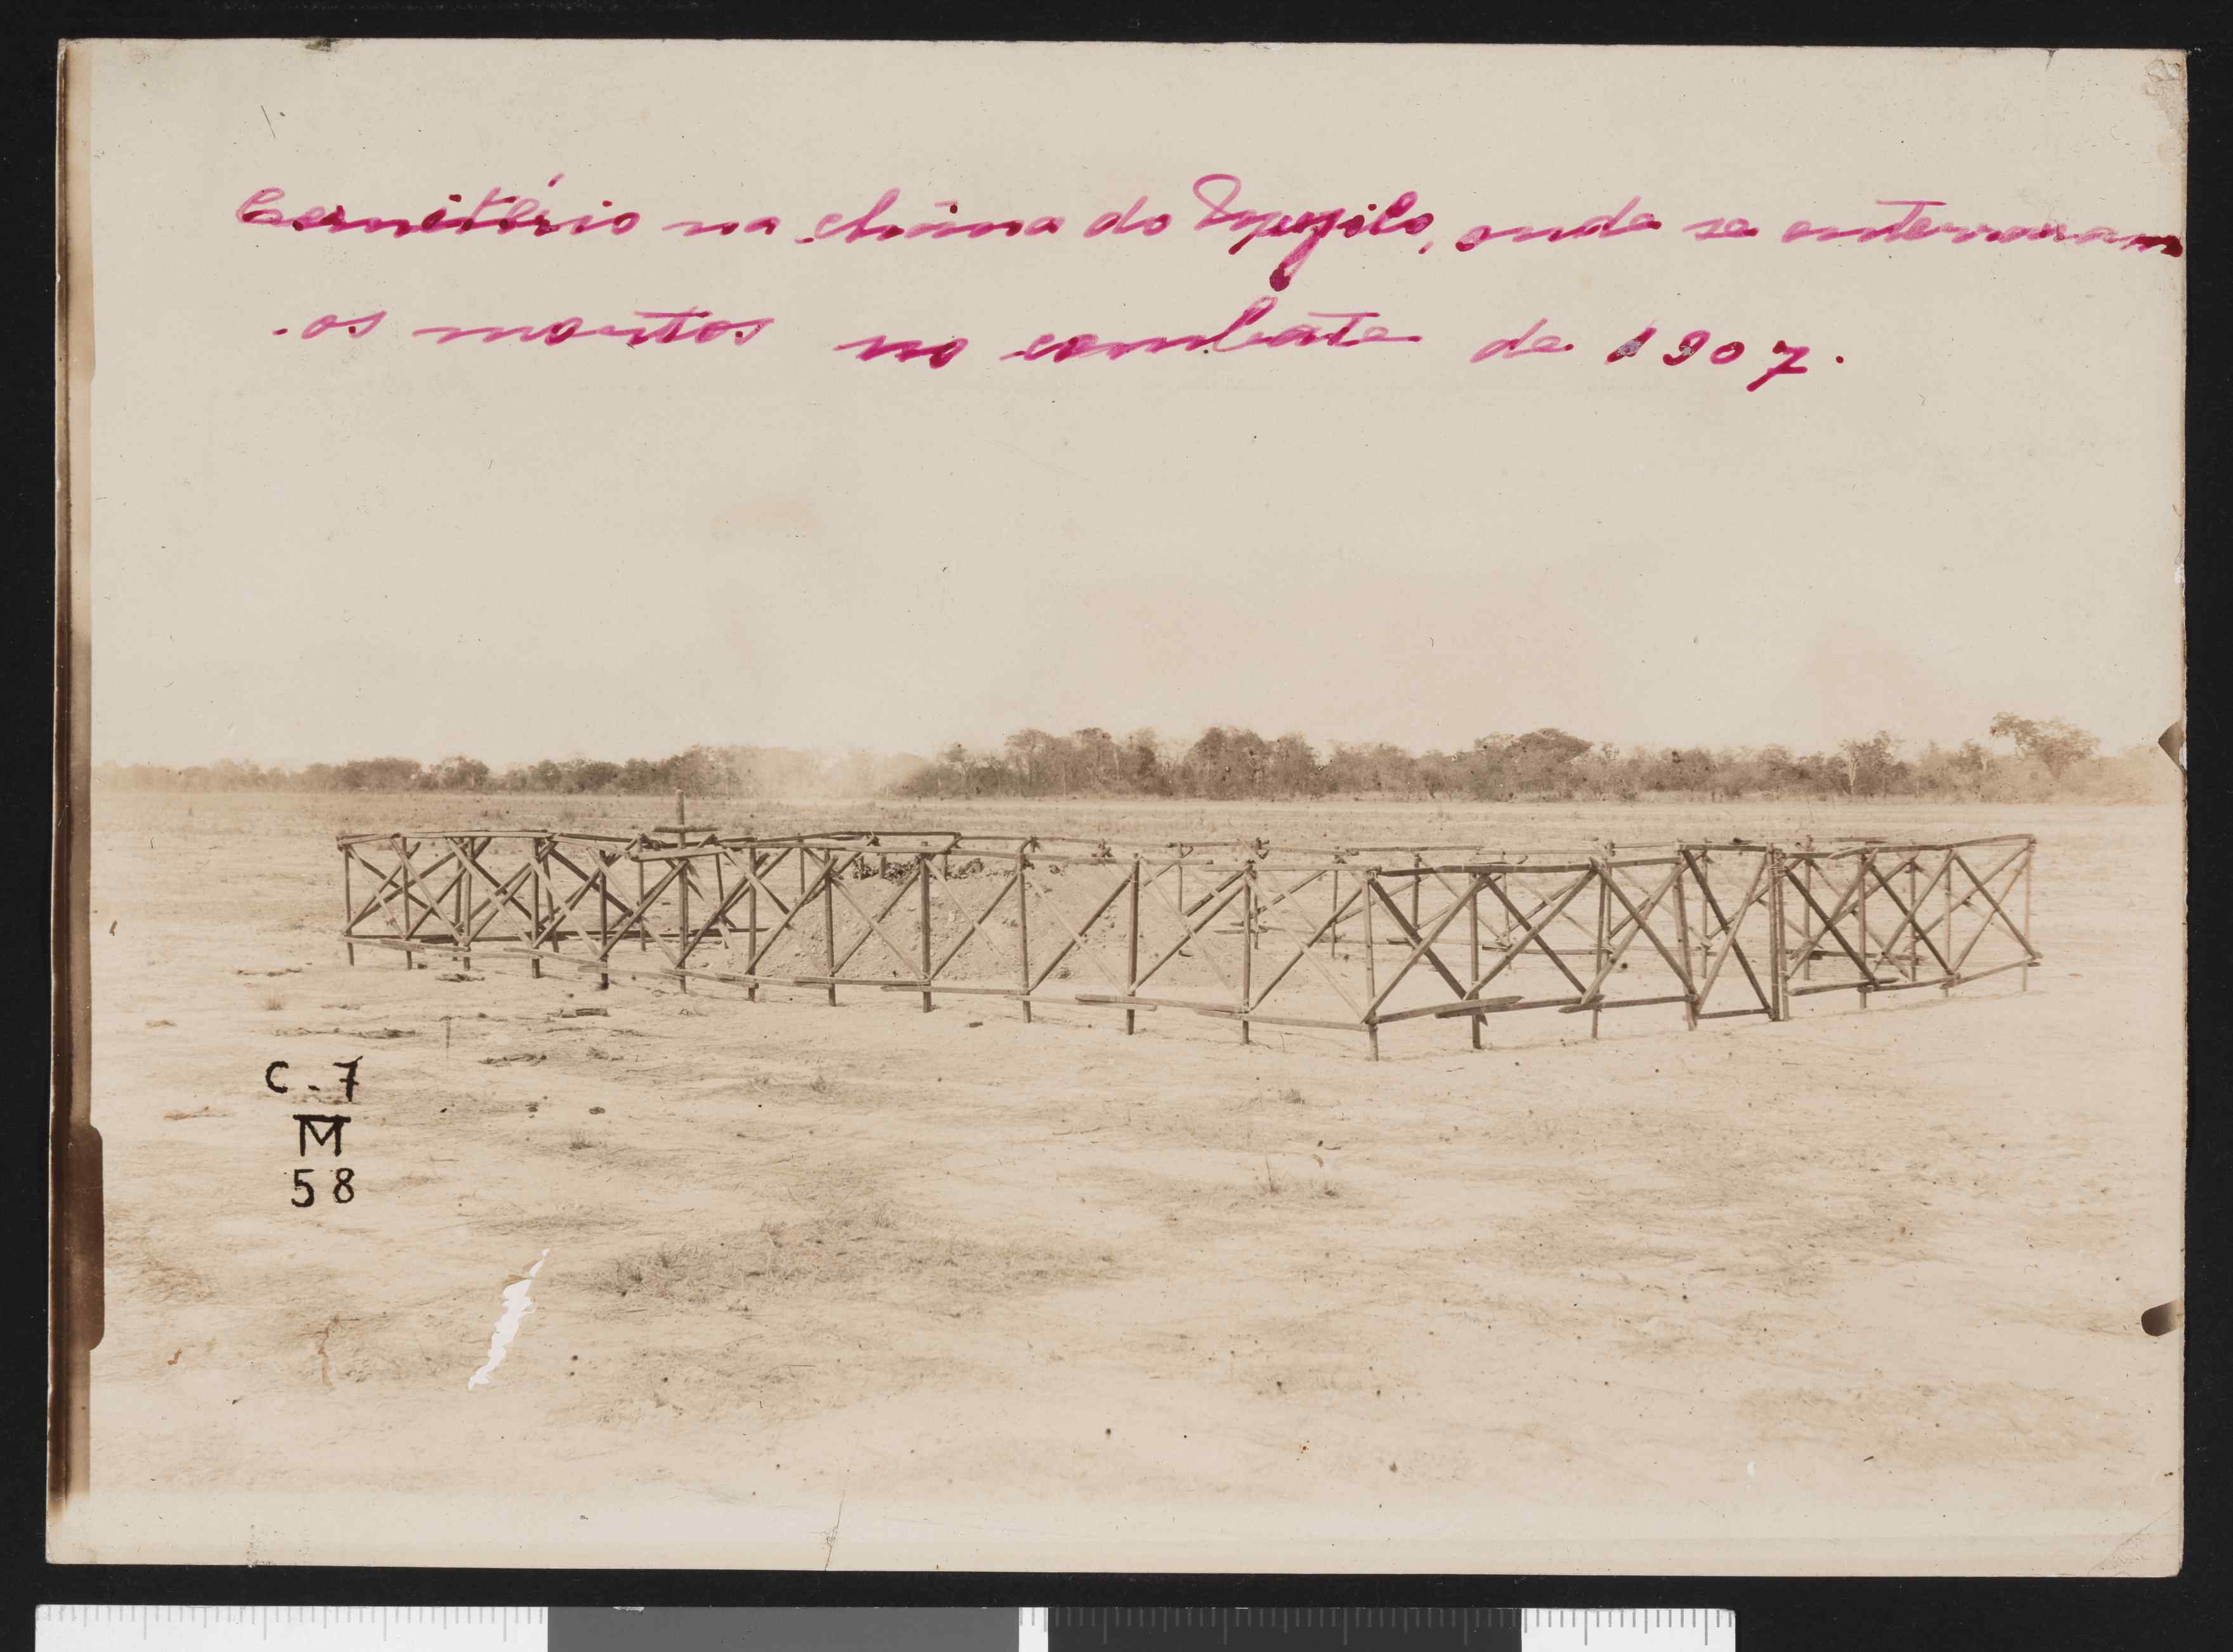 Cemitério na chana do Mufilo, onde se enterraram
os mortos no combate de 1907.
C-7
M
58